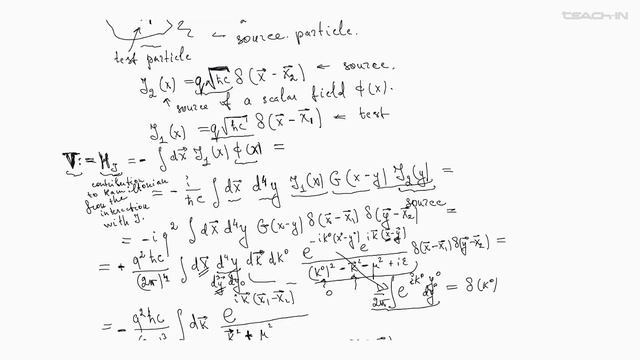 TEACH-IN
← source particle.
test particle
J₂(x) = q√ħc δ(x⃗ − x⃗₂) ← source.
↑ source of a scalar field ϕ(x).
J₁(x) = q√ħc δ(x⃗ − x⃗₁) ← test
V := H_J = − ∫ dx⃗ J₁(x) ϕ(x) =
contribution to Hamiltonian from the interaction with J.
= − i/ħc ∫ dx⃗ d⁴y J₁(x) G(x−y) J₂(y) =
source
= − i q² ∫ dx⃗ d⁴y G(x−y) δ(x⃗ − x⃗₁) δ(y⃗ − x⃗₂) =
= + q²ħc/(2π)⁴ ∫ dx⃗ d⁴y dk⃗ dk⁰ e^{−ik⁰(x⁰−y⁰)} e^{ik⃗(x⃗−y⃗)}/((k⁰)² − k⃗² − μ² + iε) δ(x⃗−x⃗₁) δ(y⃗−x⃗₂) =
dy⃗ dy⁰
0
1/2π ∫ e^{ik⁰y⁰} dy⁰ = δ(k⁰)
= − q²ħc ∫ dk⃗ e^{ik⃗(x⃗₁−x⃗₂)}/(k⃗² + μ²)